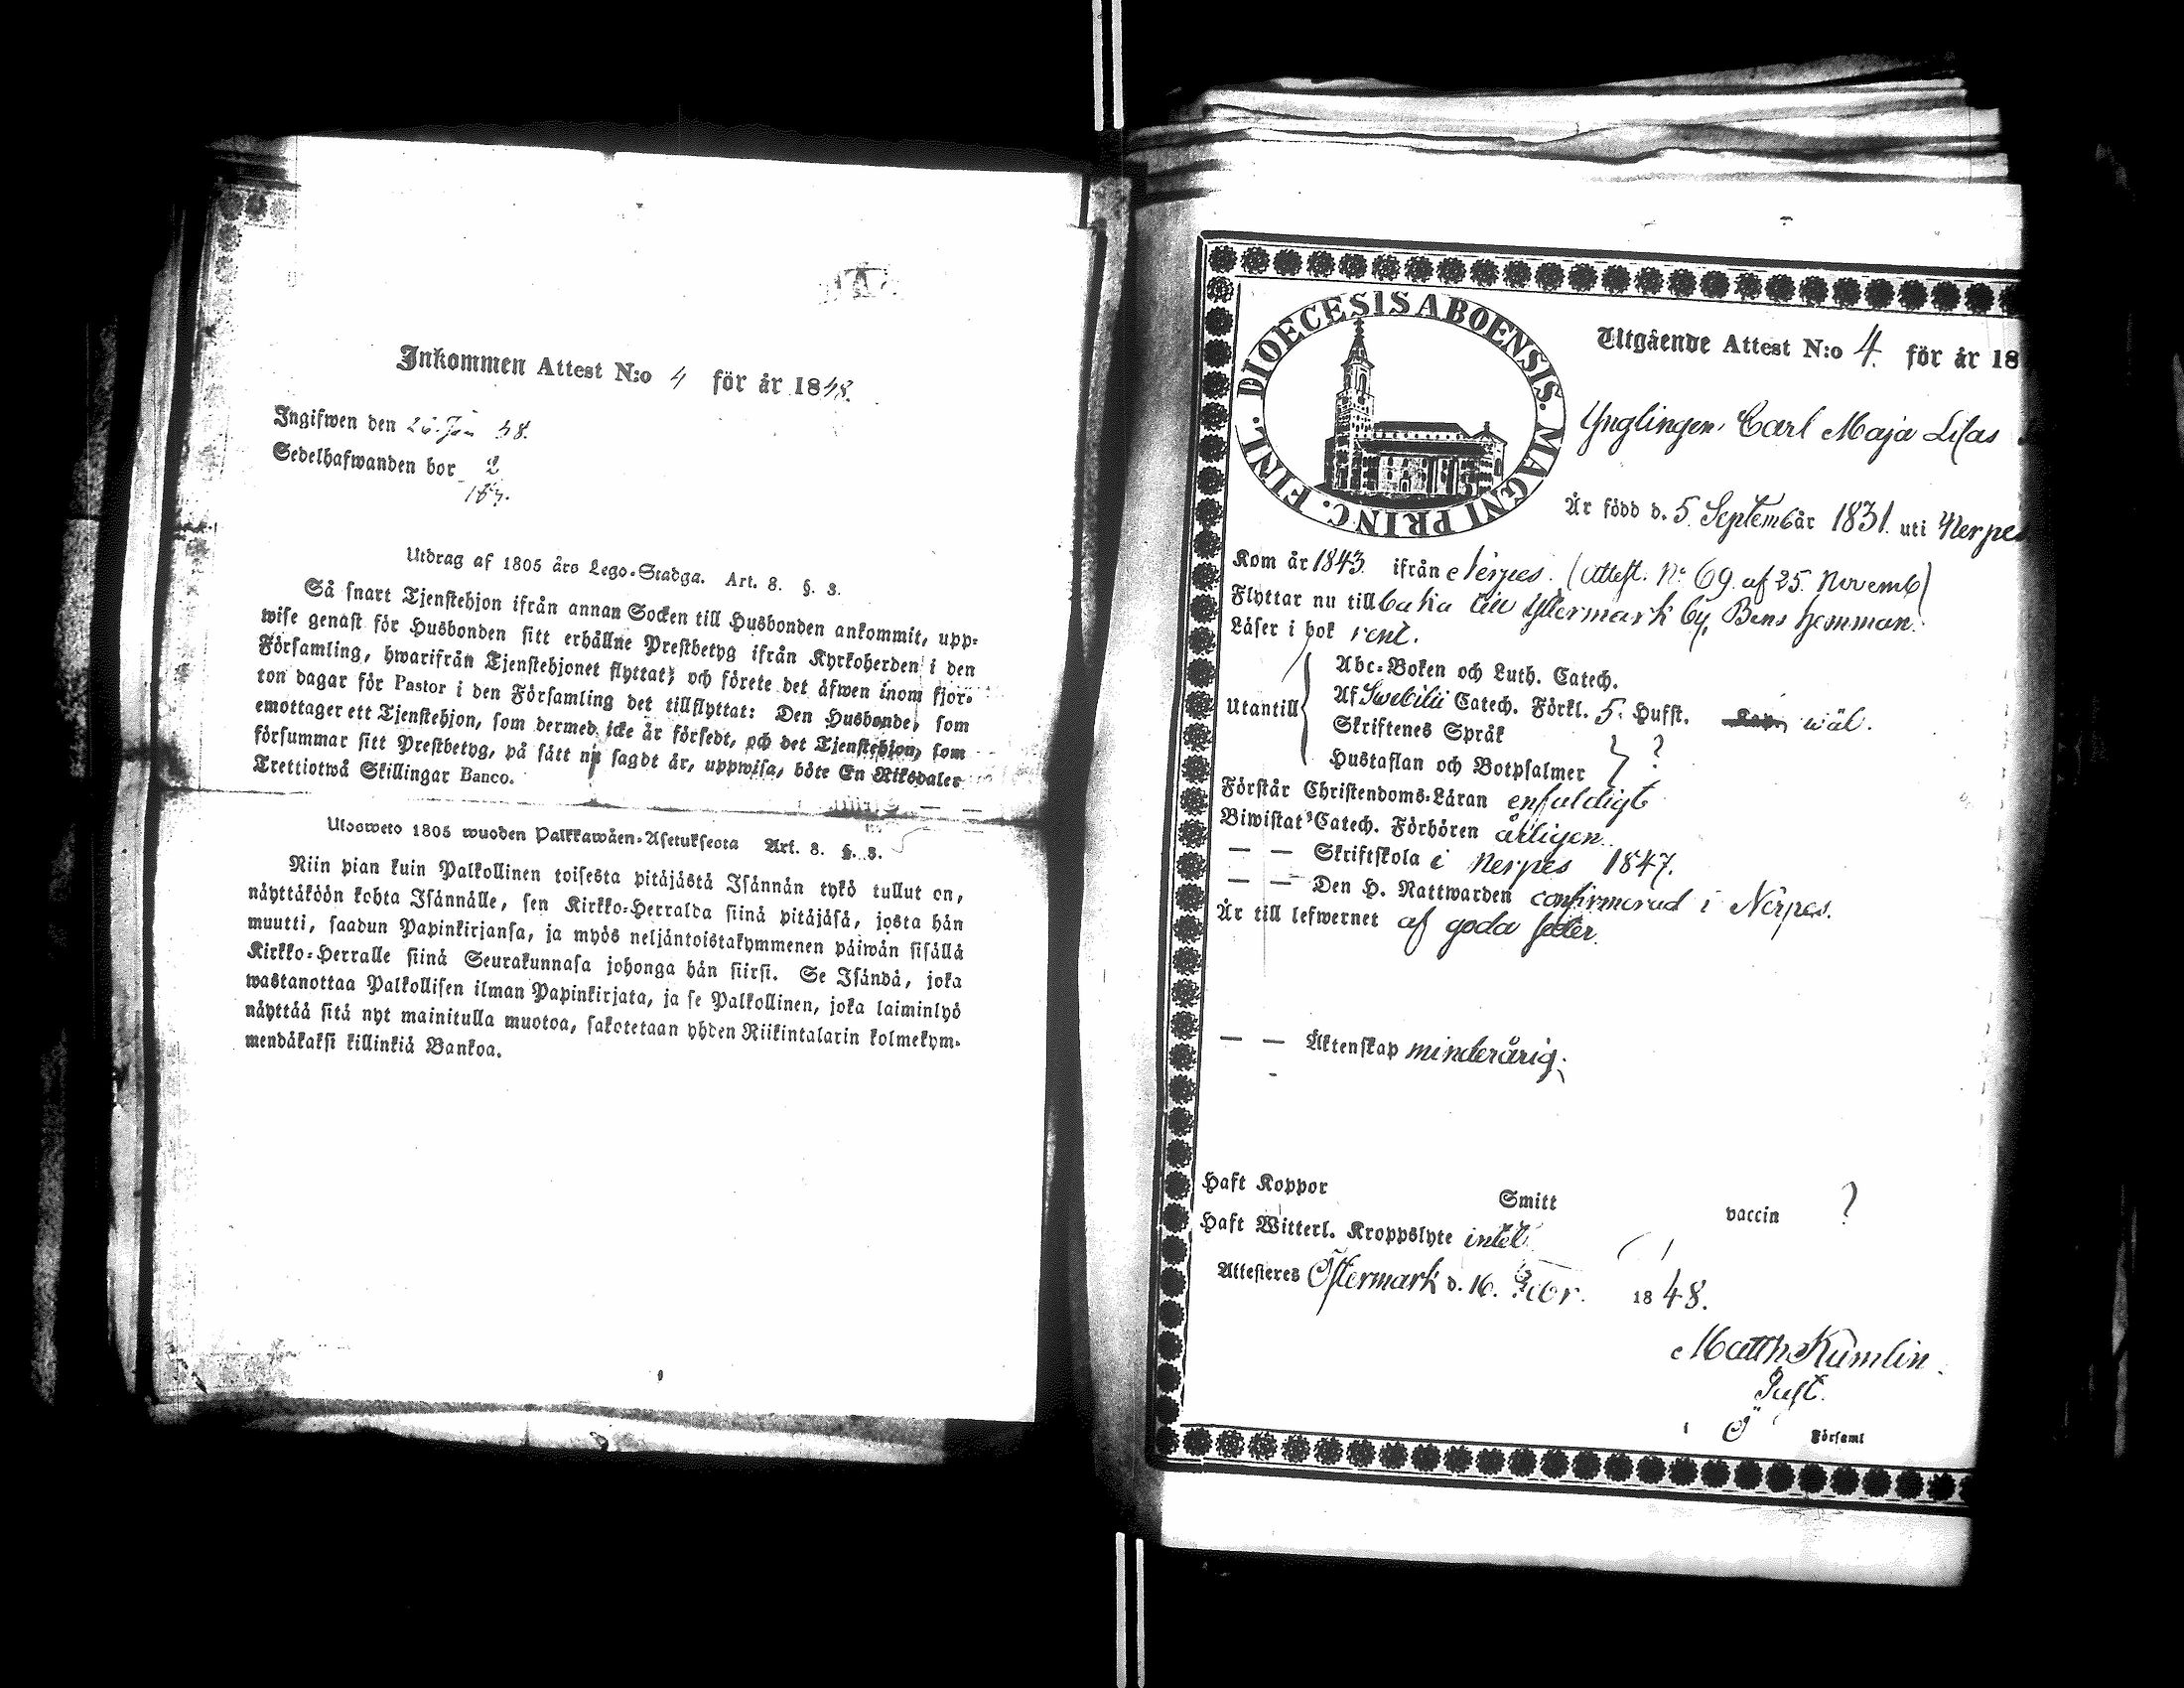 Inkommen Attest N:o 4 för år 1848.
Ingifwen den 26 Jan 48.
Sedelhafwanden bor 2
187.
Utdrag af 1805 års Lego-Stadga. Art. 8. §. 3.
Så snart Tjenstehjon ifrån annan Socken till Husbonden ankommit, upp-
wise genast för Husbonden sitt erhållne Prestbetyg ifrån Kyrkoherden i den
Församling, hwarifrån Tjenstehjonet flyttat; och förete det äfwen inom fjor-
ton dagar för Pastor i den Församling det tillflyttat: Den Husbonde, som
emottager ett Tjenstehjon, som dermed icke är försedt, och det Tjenstehjon, som
försummar sitt Prestbetyg, på sätt nu sagdt är, uppwisa, böte En Riksdaler
Trettiotwå Skillingar Banco.
Ulosweto 1805 wuoden Palkkawäen-Asetuksesta Art. 8. §. 3.
Niin pian kuin Palkollinen toisesta pitäjästä Isännän tykö tullut on,
näyttäköön kohta Isännälle, sen Kirkko-Herralda siinä pitäjäsä, josta hän
muutti, saadun Papinkirjansa, ja myös neljäntoistakymmenen päiwän sisällä
Kirkko-Herralle siinä Seurakunnasa johonga hän siirsi. Se Isändä, joka
wastanottaa Palkollisen ilman Papinkirjata, ja se Palkollinen, joka laiminlyö
näyttää sitä nyt mainitulla muotoa, sakotetaan yhden Riikintalarin kolmekym-
mendäkaksi killinkiä Bankoa.
DIOECESIS ABOENSIS. MAGNI PRINC. FINL.
Utgående Attest N:o 4. för år 18
Ynglingen Carl Maja Lisas
Är född d. 5 September 1831. uti Nerpes
Kom år 1843 ifrån Nerpes. (Attest. No 69. af 25. Novemb)
Flyttar nu till baka till Yttermark by, Bens hemman.
Läser i bok rent.
Utantill
Abc-Boken och Luth. Catech.
Af Swebilii Catech. Förkl. 5. Hufst. Kap. wäl.
Skriftenes Språk
Hustaflan och Botpsalmer ?
Förstår Christendoms-Läran enfaldigt
Biwistat Catech. Förhören årligen.
— — Skriftskola i Nerpes 1847.
— — Den H. Nattwarden confirmerad i Nerpes.
Är till lefwernet af goda seder.
— — Äktenskap minderårig.
Haft Koppor Smitt vaccin ?
Haft Witterl. Kroppslyte intet
Attesteres Östermark d. 16. Febr. 1848.
Matth. Kumlin.
Past.
i Ö Församl